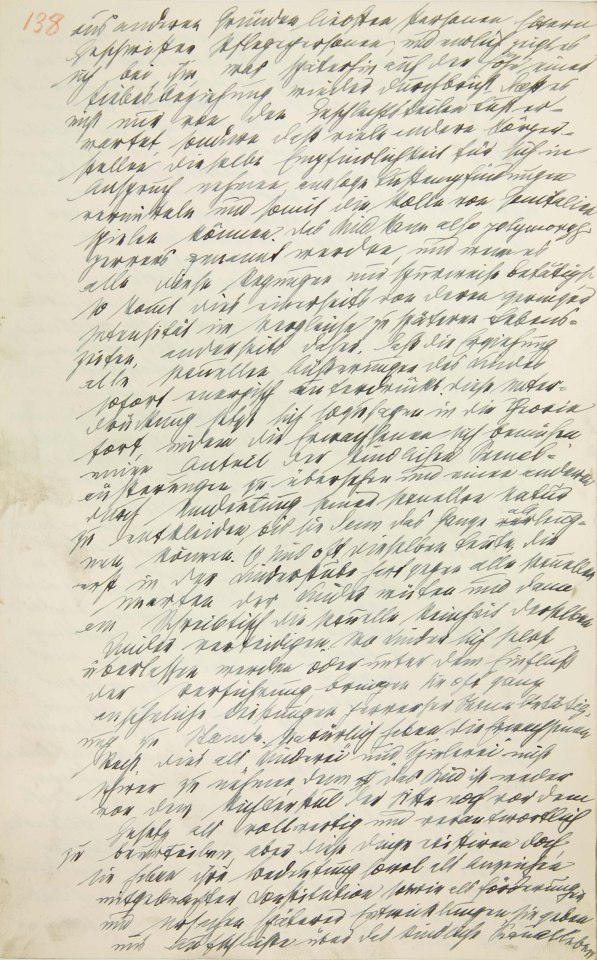 138
aus anderen Gründen liebsten Personen seinen
Geschwistern Pflegepersonen und endlich zeigt es
sich bei ihm was späterhin auf der Höhe einer
Liebesbeziehung wieder durchbricht daß es
nicht nur von den Geschlechtsteilen Lust er-
wartet sondern daß viele andere Körper-
stellen dieselbe Empfindlichkeit für sich in
Anspruch nehmen, analoge Lustempfindungen
vermitteln und somit die Rolle von Genitalien
spielen können. das Kind kann also polymorph
pervers genannt werden, und wenn es
alle diese Regungen nur spurweise betätigt
so komt dies einerseits von deren geringerer
Intensität im Vergleiche zu späteren Lebens-
zeiten, anderseits daher, daß die Erziehung
alle sexuellen Äußerungen des Kindes
sofort energisch unterdrückt. diese Unter-
drückung setzt sich sozusagen in die Theorie
fort, indem die Erwachsenen sich bemühen
einen Anteil der kindlichen Sexual-
äusserungen zu übersehen und einen anderen
durch Umdeutung seiner sexuellen Natur
zu entkleiden bis sie dann das Ganze ableug-
nen können. Es sind oft dieselben Leute, die
erst in der Kinderstube hart gegen alle sexuellen
Unarten der Kinder wüten und dann
am Schreibtisch die sexuelle Reinheit derselben
Kinder verteidigen. Wo Kinder sich selbst
überlassen werden oder unter dem Einfluß
der Verführung bringen sie oft ganz
ansehnliche Leistungen perverser Sexualbetätig-
ung zu Stande. Natürlich haben die Erwachsenen
Recht dies als Kinderei und Spielerei nicht
schwer zu nehmen denn das Kind ist weder
vor dem Richterstul der Sitte noch vor dem
Gesetz als vollwertig und verantwortlich
zu beurteilen, aber diese Dinge existiren doch,
sie haben ihre Bedeutung sowol als Anzeichen
mitgebrachter Constitution sowie als Förderungen
und Ursachen späterer Entwicklungen sie geben
uns Aufschlüsse über das kindliche Sexualleben